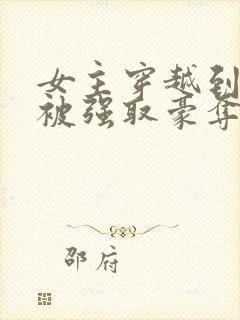 女主穿越到
被强取豪夺
邵府